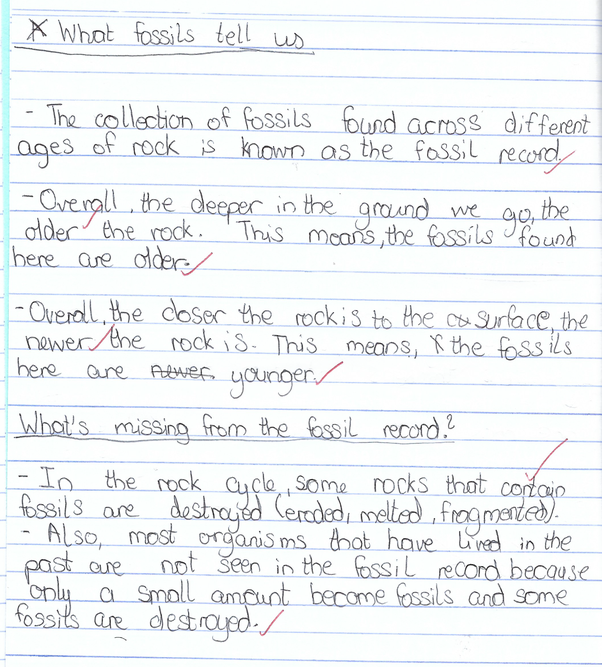 * What fossils tell us
- The collection of fossils found across different
ages of rock is known as the fossil record.
- Overall, the deeper in the ground we go, the
older the rock. This means, the fossils found
here are older.
- Overall, the closer the rock is to the surface, the
newer the rock is. This means, the fossils
here are newer younger.
What's missing from the fossil record?
- In the rock cycle, some rocks that contain
fossils are destroyed (eroded, melted, fragmented).
- Also, most organisms that have lived in the
past are not seen in the fossil record because
only a small amount become fossils and some
fossils are destroyed.